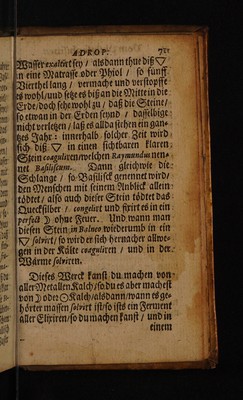 ADROP. 711
Wasser exalcert sey / alsdann thue diß 🜄
in eine Matrasse oder Phiol / so fünff
Vierthel lang / vermache und verstopffe
es wohl / und setze es biß an die Mitte in die
Erde / doch sehe wohl zu / daß die Steine /
so etwan in der Erden seynd / dasselbige
nicht verletzen / laß es allda stehen ein gan-
tzes Jahr: innerhalb solcher Zeit wird
sich diß 🜄 in einen sichtbaren klaren
Stein coaguliren welchen Raymundus nen-
net Basiliscum. Dann gleichwie die
Schlange / so Basilisck genennet wird /
den Menschen mit seinem Anblick allein
tödtet / also auch dieser Stein tödtet das
Quecksilber / congelirt und fixirt es in ein
perfect ☽ ohne Feuer. Und wann man
diesen Stein in Balneo wiederumb in ein
🜄 solvirt / so wird er sich hernacher allwe-
gen in der Kälte coaguliren / und in der
Wärme solviren.
Dieses Werck kanst du machen von
aller Metallen Kalch / so du es aber machest
von ☽ oder ☉ Kalch / alsdann / wann es ge-
hörter massen solvirt ist / so ists ein Ferment
aller Elixiren / so du machen kanst / und in
einem